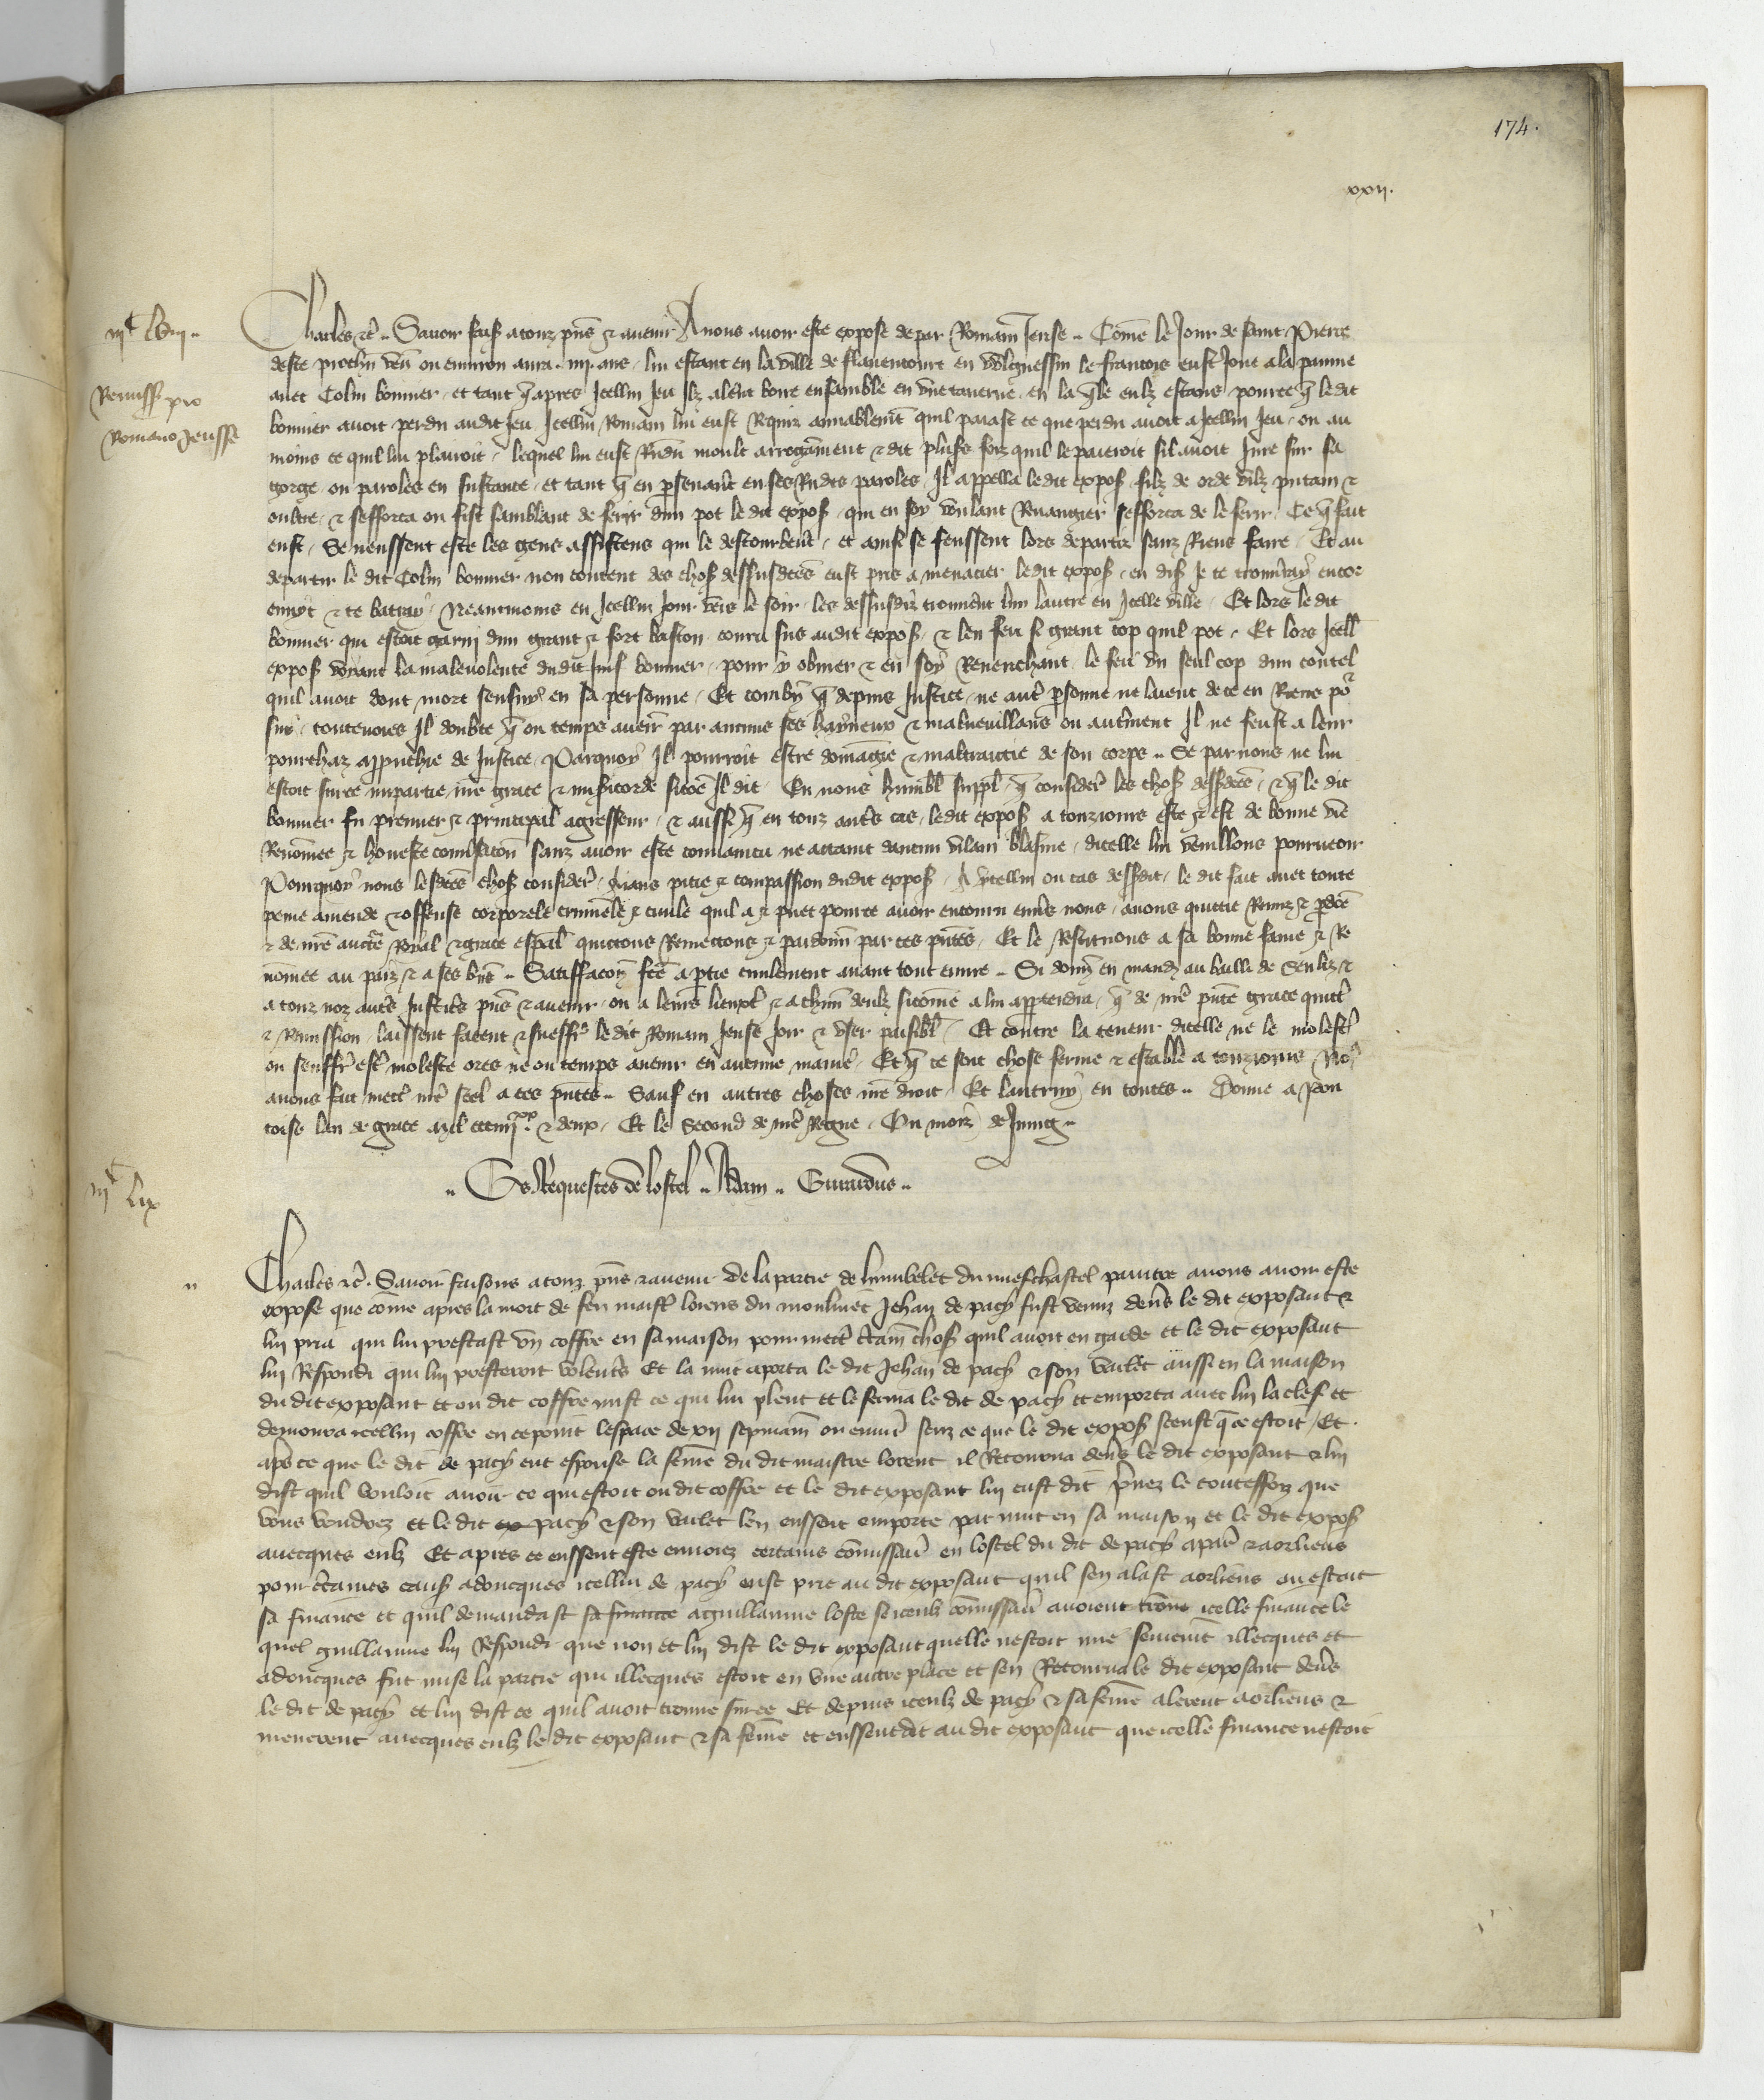 174.
xxij.
iijc lviij..
Charles etc. Savoir fais a touz pns et avenir A nous avoir este expose de par Romain Jeuse .. Come le Jour de saint Pierre
deste prochn ven ou environ aura .iiij. ans, lui estant en la ville de flavencourt en Volguessin le francois eust Joue a la paume
Remissio pro
avec Colin bonnier, et tant q apres Icellui Jeu Ilz alent boire ensamble en une taverne, en la qle eulz estans, pource q le dit
Romano Jeusse
bonnier avoit perdu audit Jeu Icellui Romain lui eust Requis amiablemt quil paiast ce que perdu avoit a Icellui Jeu, ou au
moins ce quil lui plairoit, lequel lui eust Rndu moult arrogament et dit pluss foiz quil le paieroit sil avoit Jure sur sa
gorge ou paroles en sustance, et tant q en psevant en ses Rudes paroles, Il appella le dit expos filz de orde vilz putain et
oultre, et sefforca ou fist samblant de ferir dun pot le dit expos qui en soy voulant Revangier sefforca de le ferir, Ce q fait
eust, Se neussent este les gens assistens qui le destourbent, et ainsi se feussent lors departiz sanz Riens faire, Et au
departir le dit Colin bonnier non content des chos dessusdces eust pris a menacier le dit expos, en dis Je te trouveray encor
ennyt et te batray, Neantmoins en Icellui Jour vers le soir, les dessusdiz trouvent lun lautre en Icelle ville, Et lors le dit
bonnier qui estoit garni dun grant et fort baston couru sus audit expos, et len feri si grant cop quil pot, Et lors Icell
expos voiant la malevolence dudit feu bonnier, pour y obvier et en soy Revenchant, le feri dun seul cop dun coutel
quil avoit dont mort sensuy en sa personne, Et combn q depuis Justice, ne autre psonne ne laient de ce en Riens por
sui, toutevoies Il doubte q ou temps avenir par aucuns ses hayneux et malveuillans ou autrement Il ne feust a leur
pourchaz apprehie de Justice, Parquoy Il pourroit estre domagie et maltraictie de son corps .. Se par nous ne lui
estoit sur ce impartie nre grace et misicorde sicoe Il dit, En nous humbl suppl q consider les chos dessdces, et q le dit
bonnier fu premier et principal agresseur, et aussi q en touz autres cas, le dit expos a touzjours este et est de bonne vie
Renomee et honeste conversacion sanz avoir este convaincu ne attaint daucun vilain blasme, dicelle lui veuillons pourveoir
Pourquoy nous lesdces chos consider, Aians pitie et compassion dudit expos, A ycellui ou cas dessdit, le dit fait avec toute
peine amende et offense corporele criminele et civile quil a et puet pource avoir encouru envs nous, avons quictie Remis et pdone
et de nre aucte Roial et grace espal quictons Remectons et pardonn par ces pntes, Et le Restituons a sa bonne fame et Re
nomee au pais et a ses bns .. Satisfacion fce a ptie civilement avant tout euvre .. Si donn en mand au bailli de Senliz et
a touz noz autes Justices pns et avenir, ou a leurs lieuxt et a chun deulz sicome a lui apptendra, q de nre pnte grace quict
et Remission laissent facent et sueffr le dit Romain Jeuse Joir et user paisibl, Et contre la teneur dicelle ne le molest
ou seuffr est moleste ores ne ou temps avenir en aucune manie, Et q ce soit chose ferme et estable a touzjours Nos
avons fait mect nre seel a ces pntes .. Sauf en autres choses nre droit, Et lautruy en toutes .. Donne a Pon
toise lan de grace mil ccciiijxx et deux, Et le Second de nre Regne, Ou mois de Juing ..
.. Es Requestes de lostel .. Adam .. Giraudus ..
iijc lix
Charles etc. Savoir faisons a touz pns et avenir De la partie de humbelet du nuefchastel paintre avons avoir este
expose que come apres la mort de feu maist lorens du moulinet Jehan de pacy fust venuz devs le dit exposant et
lui pria qui lui prestast un coffre en sa maison pour mect ctain chos quil avoit en garde et le dit exposant
lui Respondi qui lui presteroit volentrs Et la nuit aporta le dit Jehan de pacy et son varlet aussi en la maison
du dit exposant et ou dit coffre mist ce qui lui pleut et le ferma le dit de pacy et emporta avec lui la clef et
demoura icellui coffre en ce point lespace de xij sepmain ou envir senz ce que le dit expos sceust q ce estoit, Et
aps ce que le dit de pacy eut espouse la feme du dit maistre lorent il Retourna devs le dit exposant et lui
dist quil vouloit avoir ce qui estoit ou dit coffre et le dit exposant lui eust dit prnez le toutesfoiz que
vous vendrez et le dit pacy et son varlet len eussent emporte par nuit en sa maison et le dit expos
avecques eulz Et apres ce eussent este envoiez certains comissair en lostel du dit de pacy a par et a orliens
pour ctaines caus adoncques icellui de pacy eust prie au dit exposant quil sen alast a orliens ou estoit
sa finance et quil demandast sa finance a guillaume loste se iceulz comissair avoient trouve icelle finance le
quel guillaume lui Respondi que non et lui dist le dit exposant quelle nestoit mie seurement illecques et
adoncques fut mise la partie qui illecques estoit en une autre place et sen Retourna le dit exposant devs
le dit de pacy et lui dist ce quil avoit trouve sur ce Et depuis iceulz de pacy et sa feme alerent a orliens et
menerent avecques eulz le dit exposant et sa feme et eussent dit au dit exposant que icelle finance nestoit